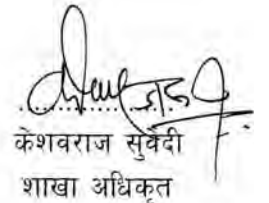 केशवराज सुवेदी
शाखा अधिकृत